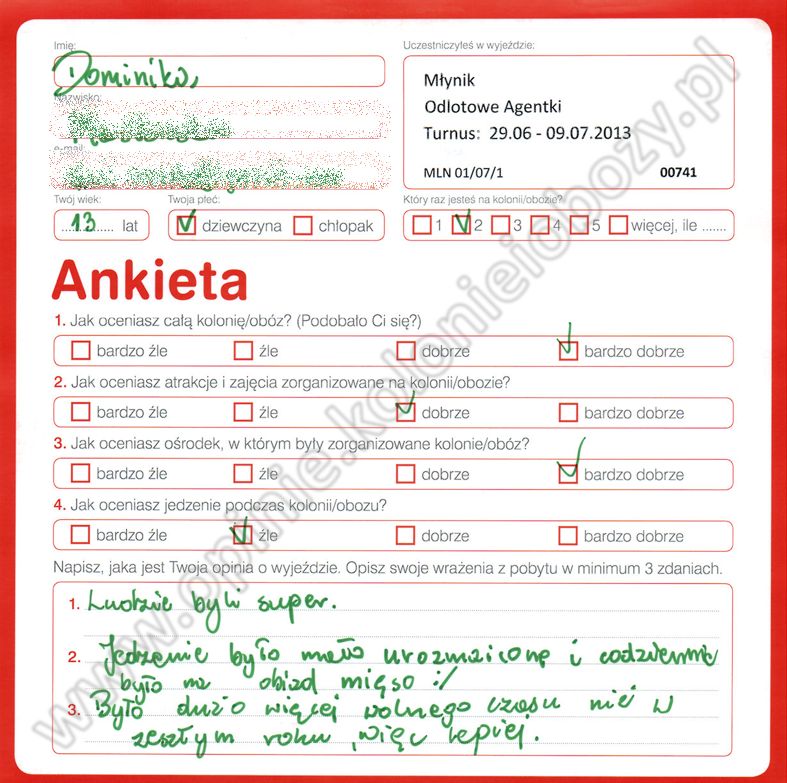 Imię:
Dominika
Uczestniczyłeś w wyjeździe:
Młynik
Odlotowe Agentki
Turnus: 29.06 - 09.07.2013
MLN 01/07/1 00741
Nazwisko:
e-mail
Twój wiek: Twoja płeć: Który raz jesteś na kolonii/obozie?
13 lat dziewczyna chłopak 1 2 3 4 5 więcej, ile .......
Ankieta
1. Jak oceniasz całą kolonię/obóz? (Podobało Ci się?)
bardzo źle źle dobrze bardzo dobrze
2. Jak oceniasz atrakcje i zajęcia zorganizowane na kolonii/obozie?
bardzo źle źle dobrze bardzo dobrze
3. Jak oceniasz ośrodek, w którym były zorganizowane kolonie/obóz?
bardzo źle źle dobrze bardzo dobrze
4. Jak oceniasz jedzenie podczas kolonii/obozu?
bardzo źle źle dobrze bardzo dobrze
Napisz, jaka jest Twoja opinia o wyjeździe. Opisz swoje wrażenia z pobytu w minimum 3 zdaniach.
1. Ludzie byli super.
2. Jedzenie było mało urozmaicone i codziennie
było na obiad mięso :/
3. Było dużo więcej wolnego czasu niż w
zeszłym roku, więc lepiej.
www.opinie.kolonieiobozy.pl